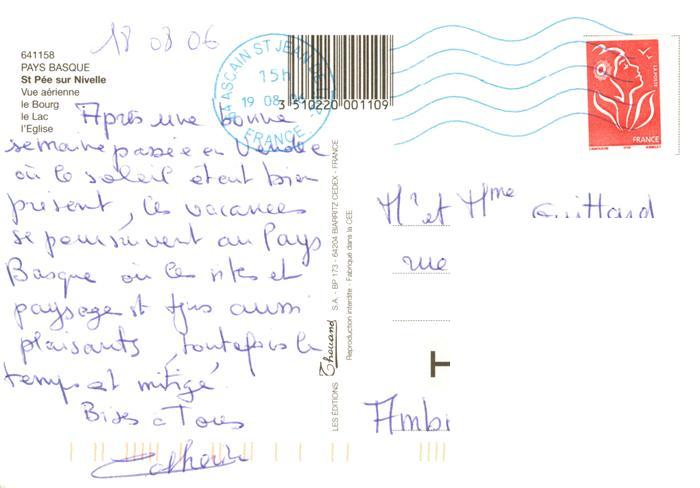 18 08 06
641158
PAYS BASQUE
St Pée sur Nivelle
Vue aérienne
le Bourg
le Lac
l'Eglise
Après une bonne
semaine passée en Vendée
où le soleil était bien
présent, les vacances
se poursuivent au Pays
Basque où les sites et
paysages st tjrs aussi
plaisants, toutefois le
temps est mitigé.
Bises à Tous
64 ASCAIN ST JEAN
15h
19 08
FRANCE
3 510220 001109
LA POSTE
FRANCE
LES ÉDITIONS Thouand S.A. - BP 173 - 64204 BIARRITZ CEDEX - FRANCE
Reproduction interdite - Fabriqué dans la CEE
Mr et Mme Guittard
rue
T
Ambi